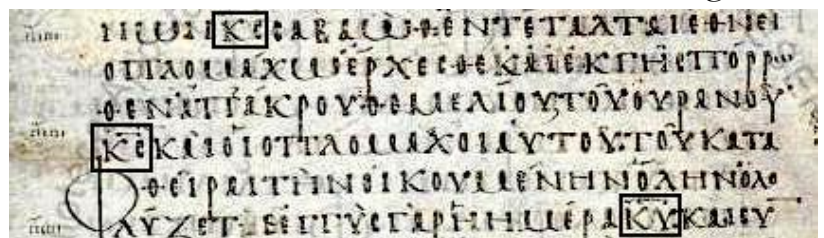 ΝΩΝ ΚϹ ϹΑΒΑΩΘΕΝΤΕΤΑΛΤΑΙΕΘΝΕΙ
ΟΠΛΟΜΑΧΩΕΡΧΕϹΘΕΚΑΙΕΚΓΗϹΠΟΡΡΩ
ΘΕΝΑΠΑΚΡΟΥΘΕΜΕΛΙΟΥΤΟΥΟΥΡΑΝΟΥ
ΚϹ ΚΑΙΟΙΟΠΛΟΜΑΧΟΙΑΥΤΟΥ·ΤΟΥΚΑΤΑ
ΦΘΕΙΡΑΙΤΗΝΟΙΚΟΥΜΕΝΗΝΟΛΗΝΟΛΟ
ΛΥΖΕΤΕΕΓΓΥϹΓΑΡΗΗΜΕΡΑ ΚΥ ΚΑΙϹΥ